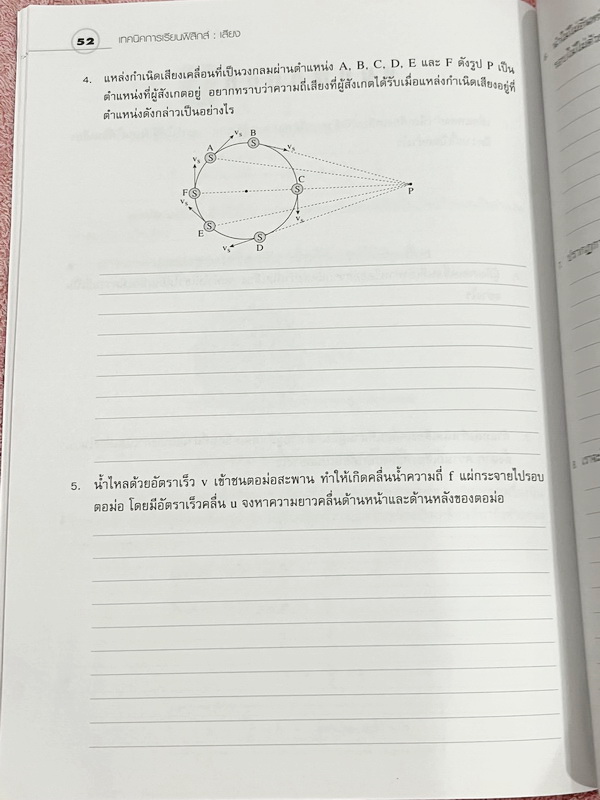 52 เทคนิคการเรียนฟิสิกส์ : เสียง
4. แหล่งกำเนิดเสียงเคลื่อนที่เป็นวงกลมผ่านตำแหน่ง A, B, C, D, E และ F ดังรูป P เป็น
ตำแหน่งที่ผู้สังเกตอยู่ อยากทราบว่าความถี่เสียงที่ผู้สังเกตได้รับเมื่อแหล่งกำเนิดเสียงอยู่ที่
ตำแหน่งดังกล่าวเป็นอย่างไร
vs B
A S vs
vs S
C
F S S P
vs vs
S
E S
vs D
5. น้ำไหลด้วยอัตราเร็ว v เข้าชนตอม่อสะพาน ทำให้เกิดคลื่นน้ำความถี่ f แผ่กระจายไปรอบ
ตอม่อ โดยมีอัตราเร็วคลื่น u จงหาความยาวคลื่นด้านหน้าและด้านหลังของตอม่อ